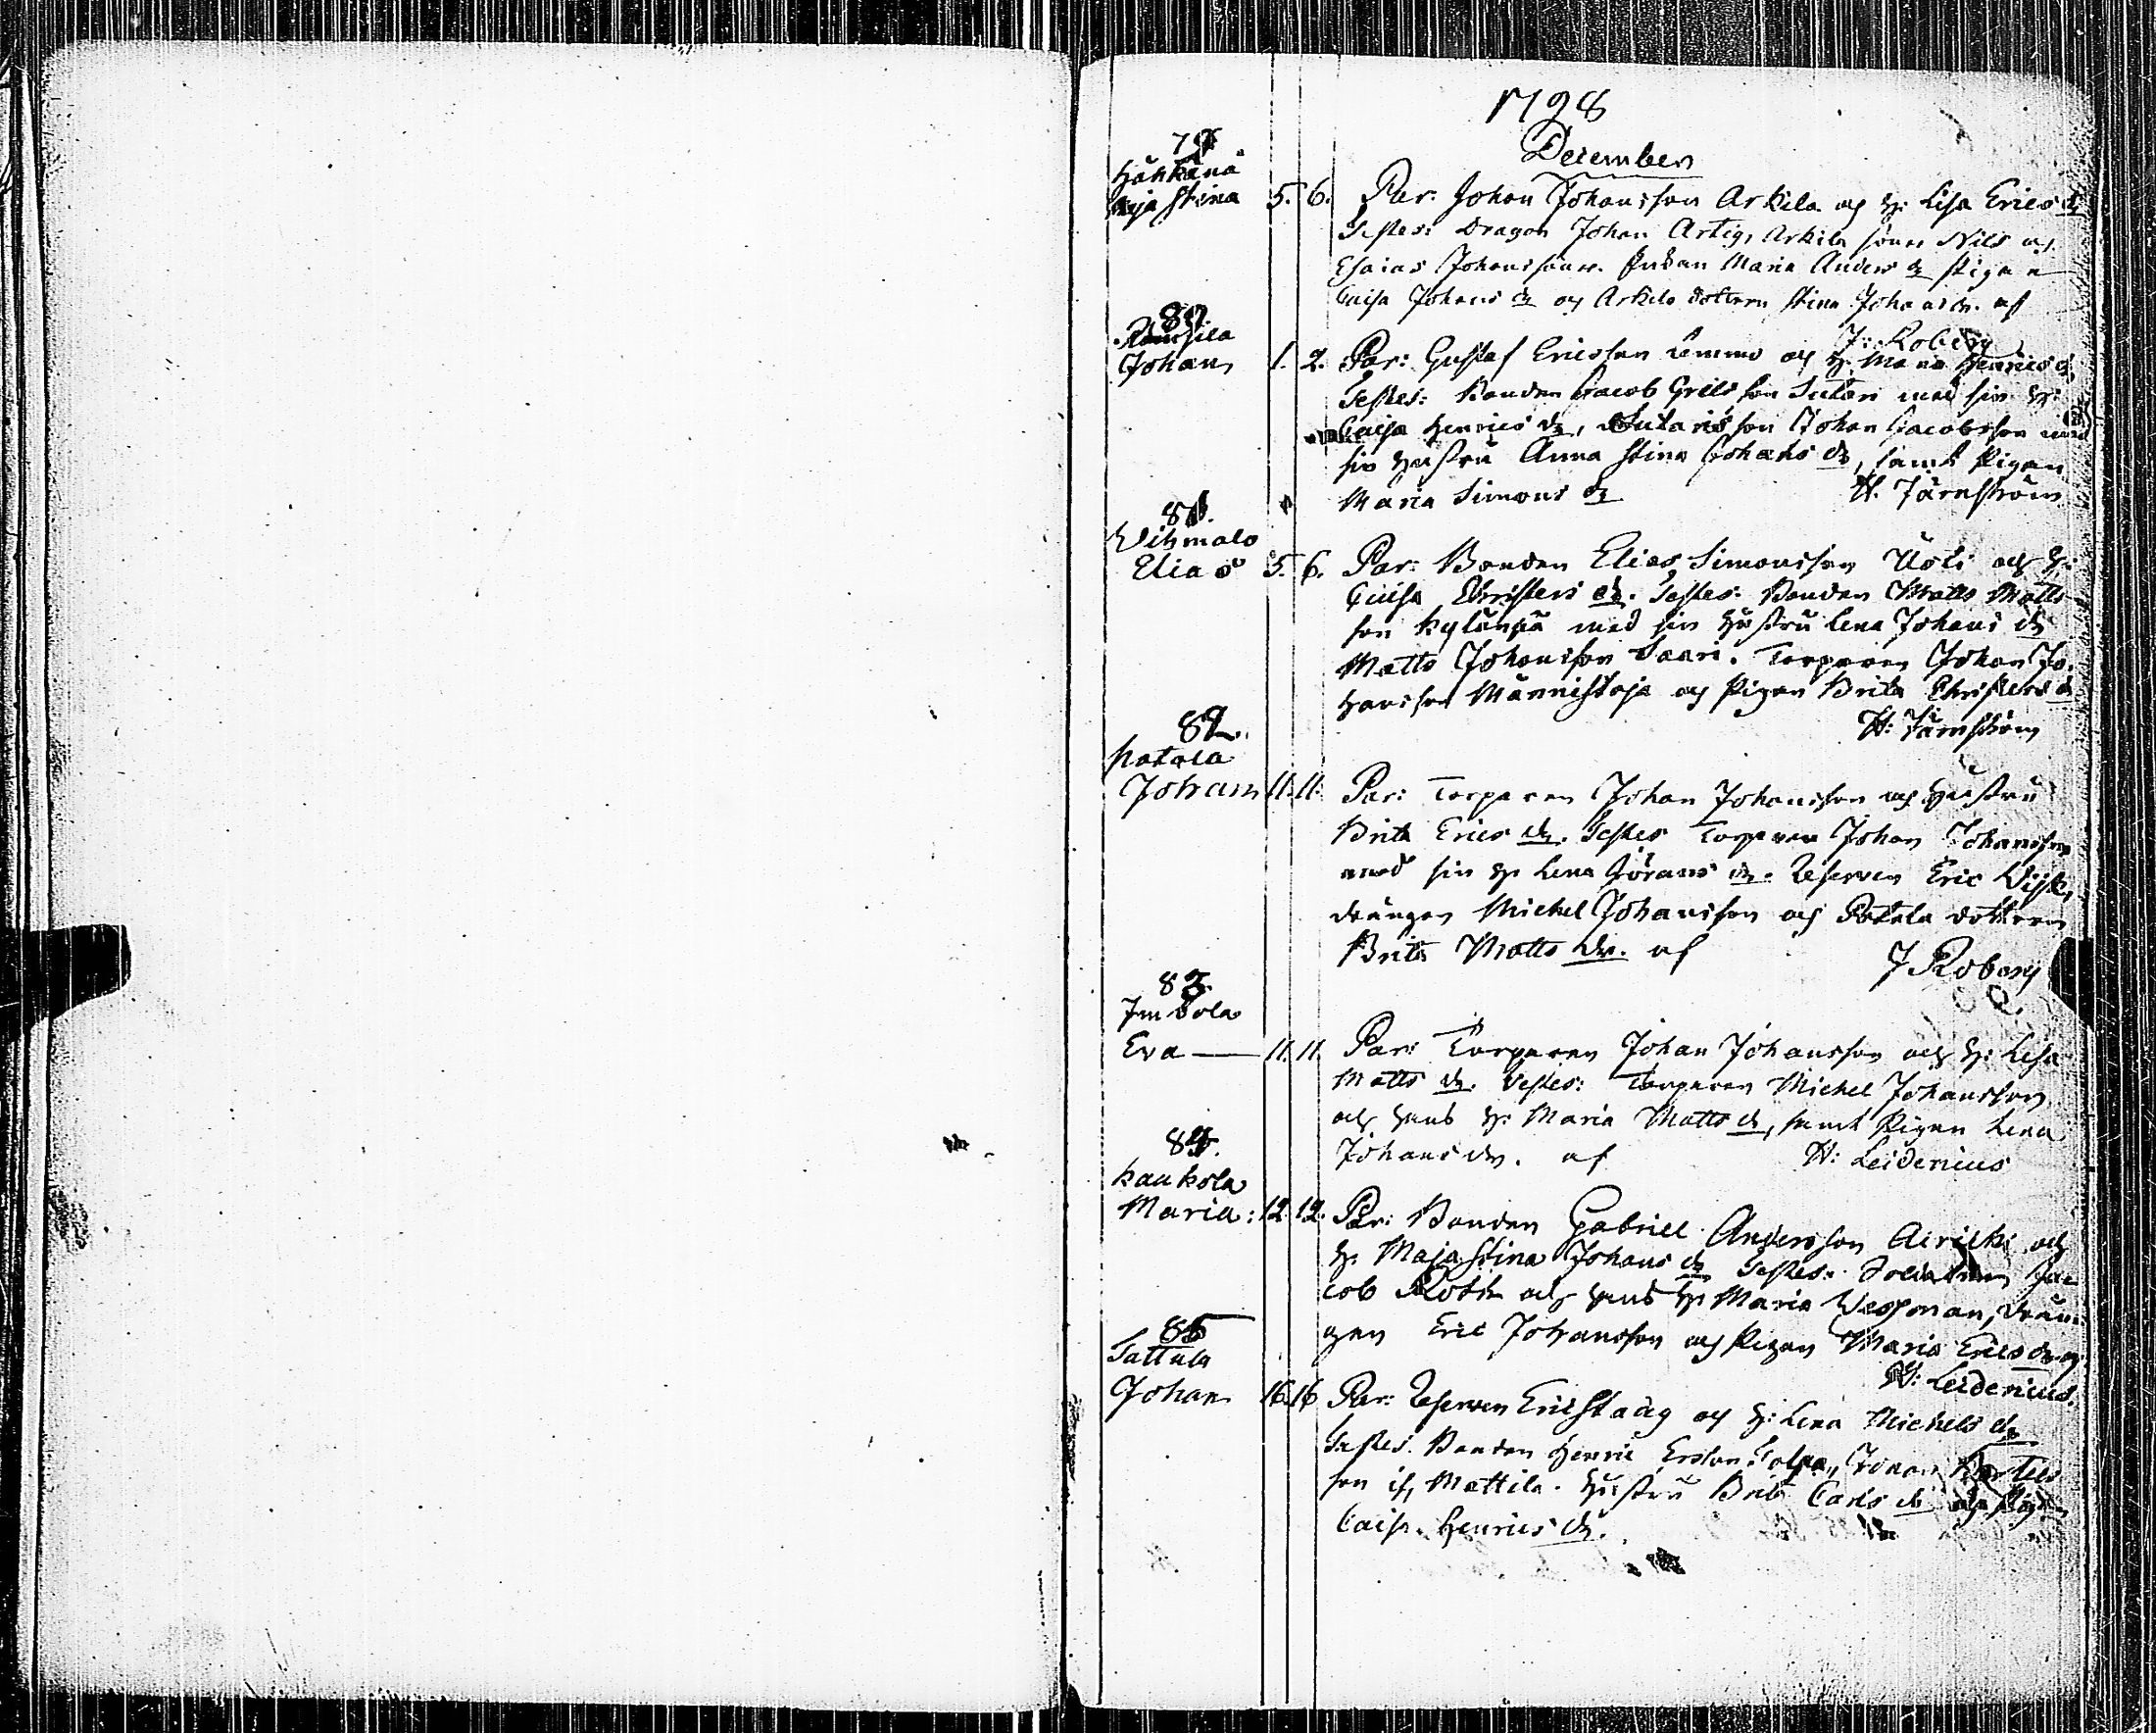 1798
December
79.
Häkkänä
Maja Stina 5. 6. Par: Johan Johansson Arkila och H: Lisa Erics dr
Testes: Dragon Johan Artig, Arkila söner Nils och
Esaias Johanssöner. Maria Anders dr Pigan
Caisa Johans dr och Arkila dottern Stina Johansdr. af
J: Roberg
80
Johan 1. 2. Par: Gustaf Ericsson Lemmo och H: Maria Henrics dr
Testes: Bonden Jacob Grelsson Sutari med sin H:
Caisa Henrics dr, Sutaris son Johan Jacobsson med
sin Hustru Anna Stina Johans dr, samt Pigan
Maria Simons dr H. Järnström
81.
Vihmalo
Elias 5. 6. Par: Bonden Elias Simonsson Uoti och H:
Caisa Christers dr. Testes: Bonden Matts Matts
son Kylänpä med sin Hustru Lena Johans dr
Matts Johansson Saari. Torparen Johan Jo-
hansson Männistoja och Pigan Brita Christers dr
H: Järnström
82.
Katala
Johan 11. 11. Par: Torparen Johan Johansson och Hustru
Brita Erics dr. Testes Torparen Johan Johansson
med sin H: Lena Jörans dr. Reserven Eric
drängen Michel Johansson och dottren
Brita Matts dr. af J Roberg
83.
Imdola
Eva — 11. 11. Par: Torparen Johan Johansson och H: Lisa
Matts dr. Testes: Torparen Michel Johansson
och hans H: Maria Matts dr, samt Pigan Lena
Johansdr. af H: Leidenius
84.
Kaukola
Maria: 12. 12. Par: Bonden Gabriel Andersson Airikki och
H: Maja Stina Johans dr Testes: Soldaten Ja-
cob Roth och hans H: Maria Wespman, drän-
gen Eric Johansson och Pigan Maria Erics dr af
H: Leidenius.
85
Sattula
Johan 16. 16 Par: Reserven Eric Staug och H: Lena Michels dr
Testes. Bonden Henric Ersson Tolpo, Johan
son if. Mattila. Hustru Brita Carls dr och Pigan
Caisa Henrics dr.